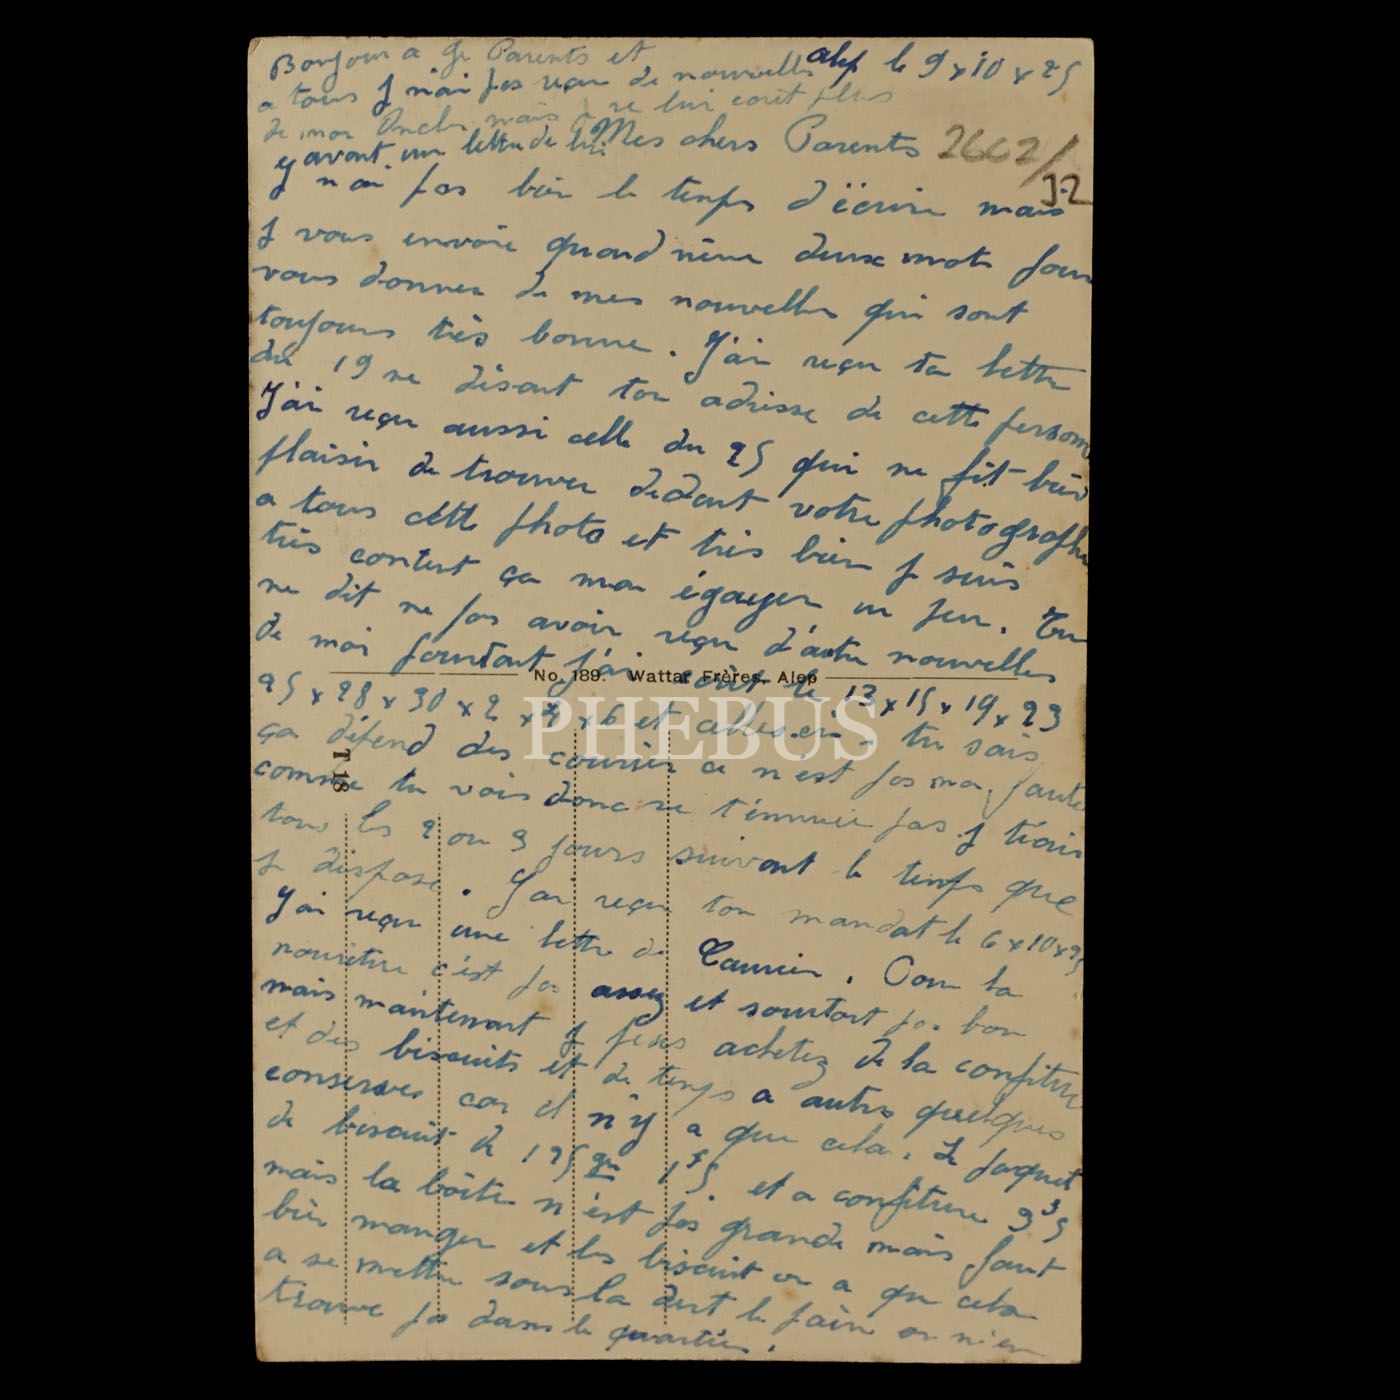 Bonjour a Gr Parents et
a tous J n'ai pas reçu de nouvelles
de mon Oncle mais J ne lui ecrit plus
y avant une lettre de lui
alep le 9 x 10 x 25
Mes chers Parents
2662/
J-2
J n ai pas bien le temps d'ëcrire mais
J vous envoie quand même deux mots pour
vous donner de mes nouvelles qui sont
toujours très bonne. J'ai reçu ta lettre
du 19 me disant ton adresse de cette personn
J'ai reçu aussi celle du 25 qui me fit bien
plaisir de trouver dedant votre photographi
a tous cette photo et très bien J suis
très content ça mon égayer un peu. Tu
me dit ne pas avoir reçu d'autre nouvelles
de moi pourtant J'ai ecrit le 13 x 15 x 19 x 23
No. 189. Wattar Frères, Alep
25 x 28 x 30 x 2 x 4 x 6 et celles.ci - tu sais
ça défend des courrier ce n'est pas ma faute
comme tu vois donc ne t'ennuie pas J t'écris
T 18
tous les 2 ou 3 jours suivant le temps que
J dispose. J'ai reçu ton mandat le 6 x 10 x 25
J'ai reçu une lettre de . Pour la
nouriture c'est pas assez et sourtout pas bon
mais maintenant J peus achetez de la confiture
et des biscuits et de temps a autre quelques
conserves car il n'y a que cela. Le paquet
de biscuit de 125 gr 1 f 5. et a confiture 3 f 5
mais la boîte n'est pas grande mais faut
bien manger et les biscuit on a que cela
a se mettre sous la dent le pain on n'en
trouve pas dans le quartier.
PHEBUS